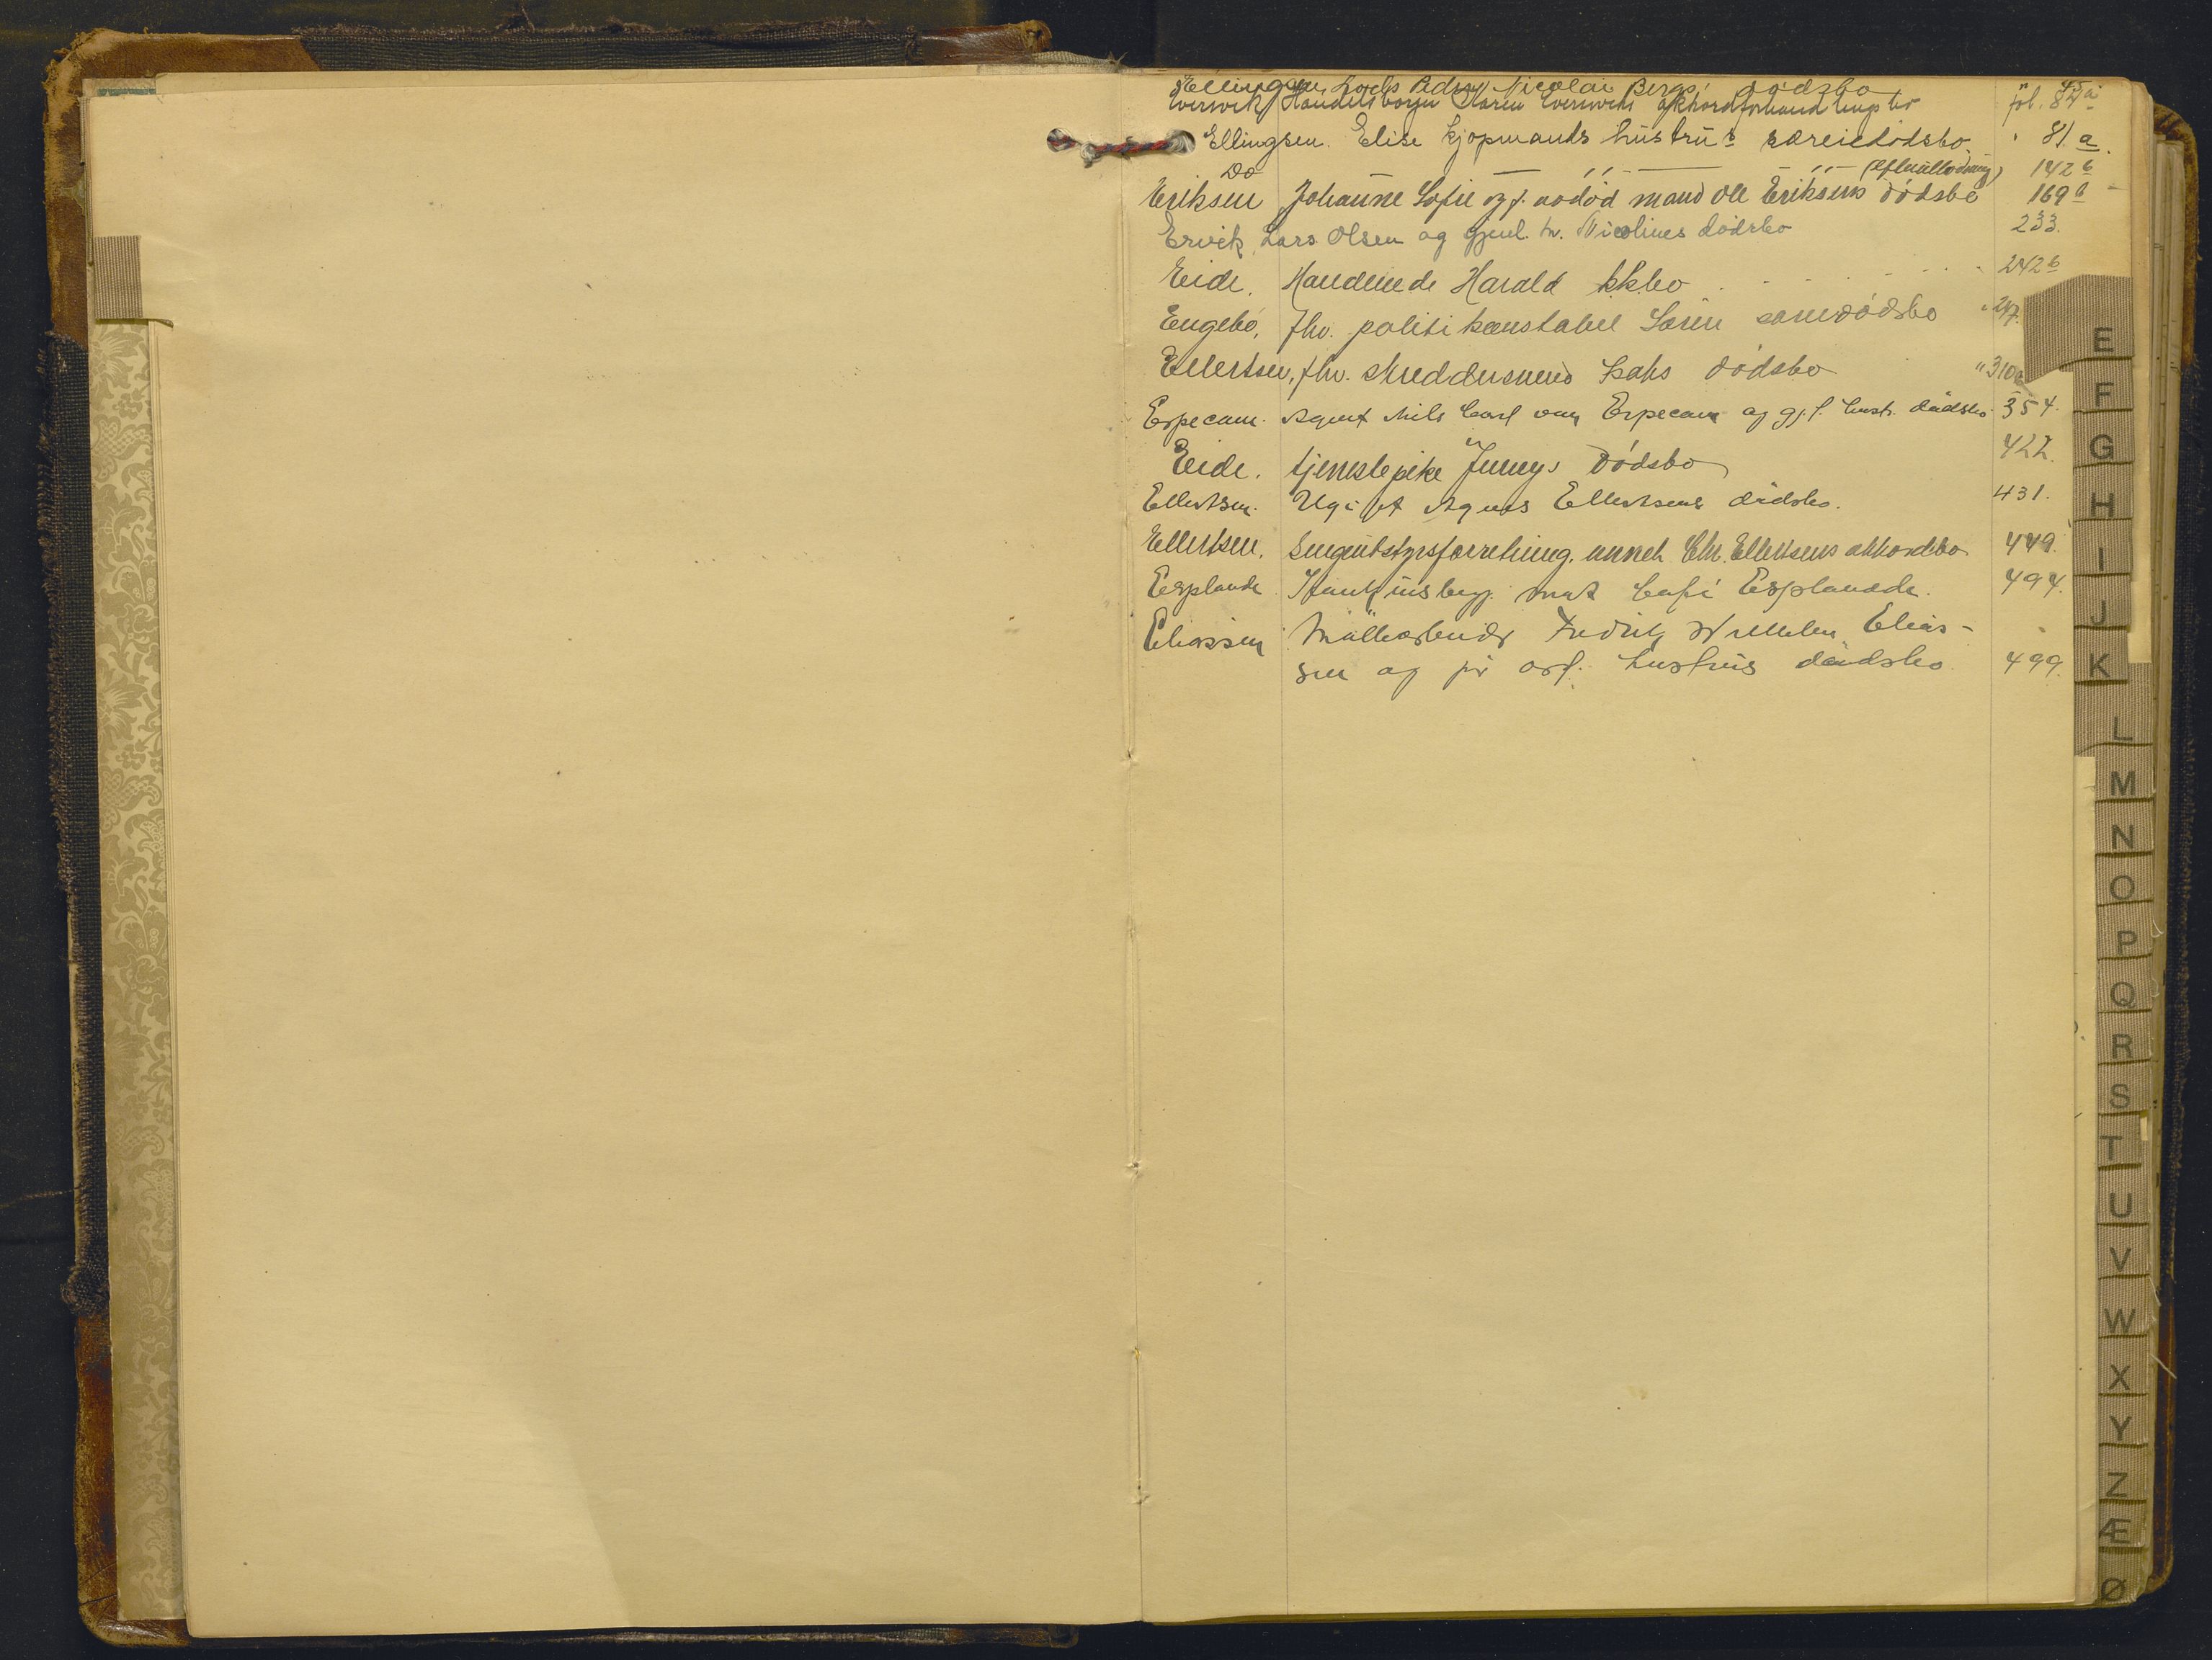 Ellingsen, Lods Peder Nicolai Bergs dødsbo " 45 a
Evervik Handelsborger Karen Everviks akkordforhandlingsbo fol. 8
Ellingsen. Elise kjøpmands hustrus særeiedødsbo " 81 a.
Do — " — " — 142 b
Eriksen Johanne Sofie og f. avdød mand Ole Eriksens dødsbo 169 b
Ervik, Lars Olsen og gjenl. h. Nicolines dødsbo 233.
Eide, Handlende Harald kkbo 242 b
Engebø, fhv. politikonstabel Søren samdødsbo " 247.
Ellertsen, fhv. skreddersvend Isaks dødsbo " 310
Erpecom. Agent Nils Carl von Erpecom og gj.f. hust. dødsbo 354.
Eide. tjenestepike Jennys dødsbo 422.
Ellertsen. Ugift Agnes Ellertsens dødsbo. 431.
Ellertsen. Sengeutstyrsforretning. inneh. Chr. Ellertsens akkordbo 449.
Esplanade Konkursbegj. mot Café Esplanade. 494.
Eliassen Møllearbeider Fredrik Wilhelm Elias-
sen og før avd. hustrus dødsbo 499.
E
F
G
H
I
J
K
L
M
N
O
P
Q
R
S
T
U
V
W
X
Y
Z
Æ
Ø